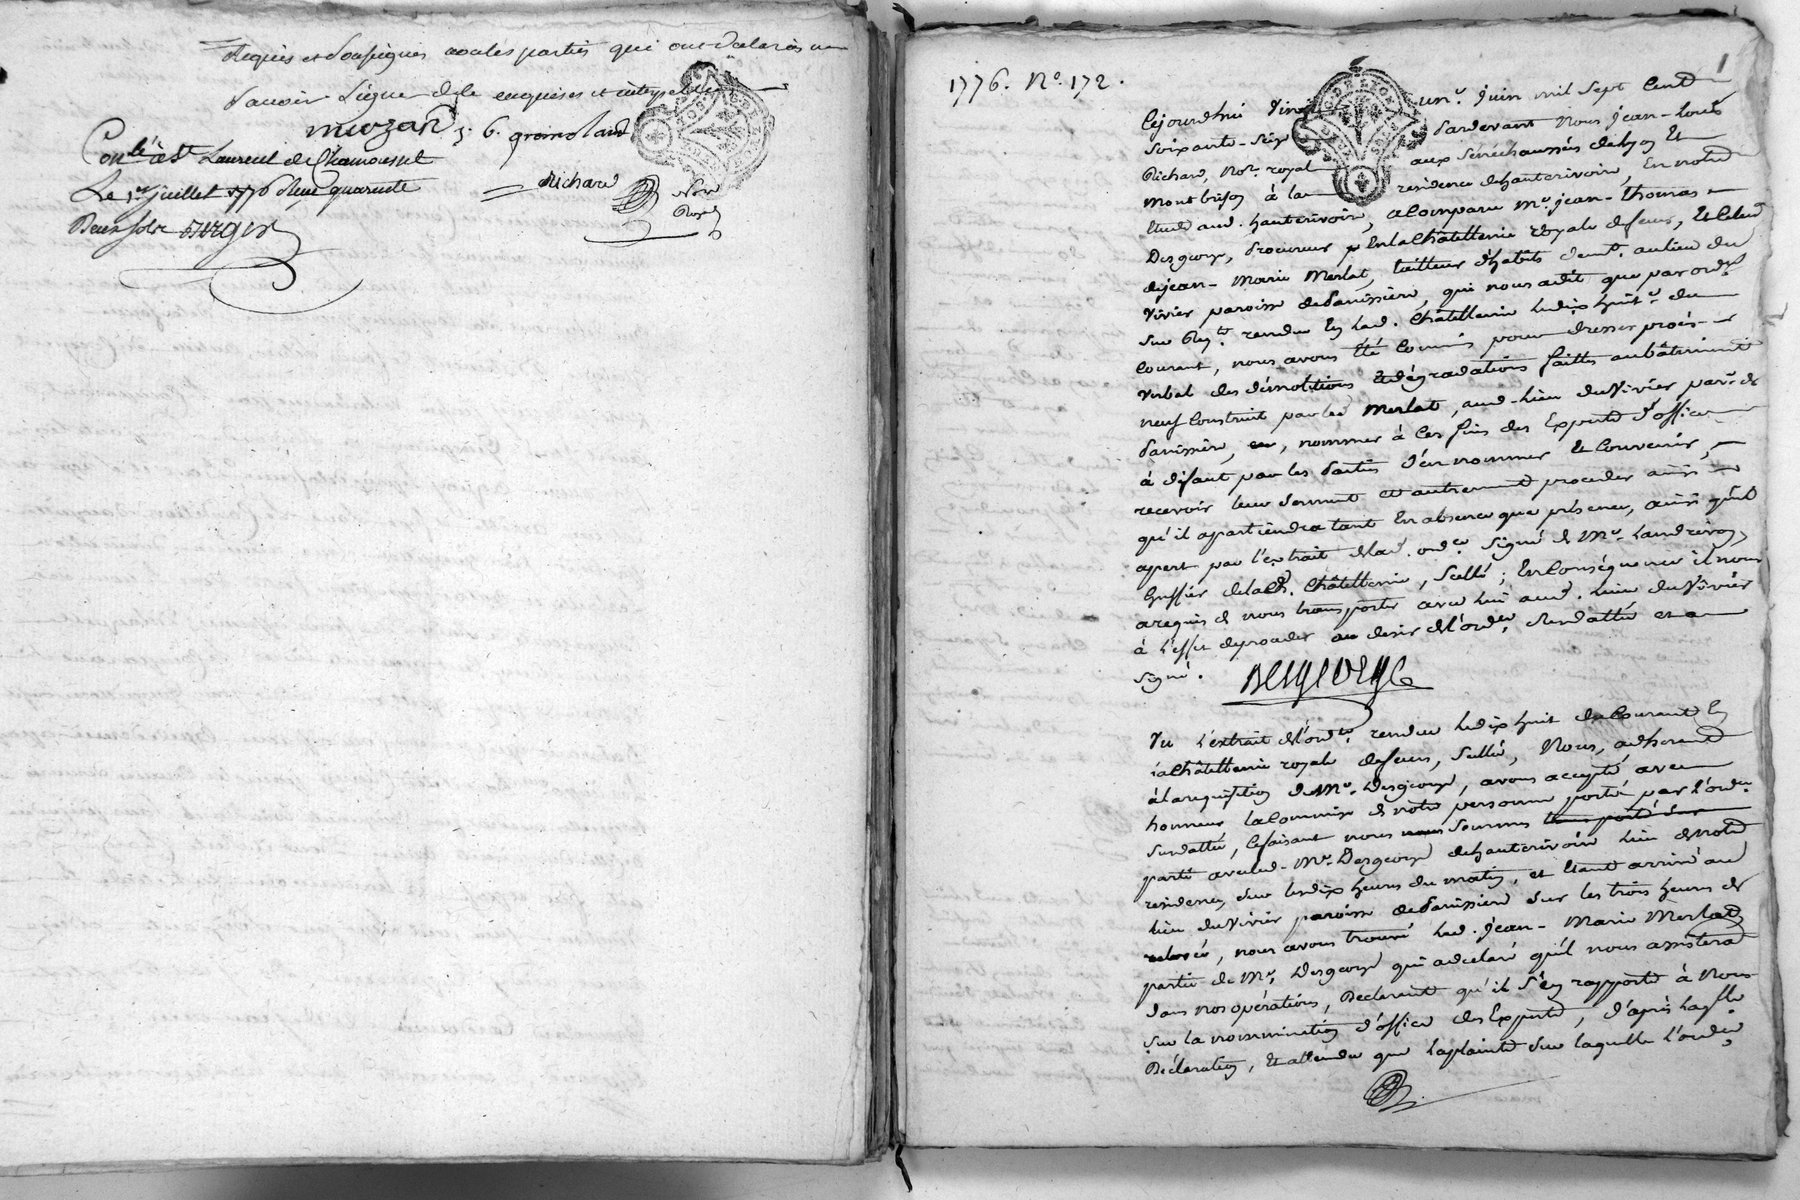 Requis et soussignes avec les parties qui ont declarés ne
savoir signer de ce enquises et interpellées
muzard J. B. grains
Con.le à St Laurent de Chamousset
Le 1er juillet 1776 Reçu quarente
Deux sols Berger
Richard Nore
Royal
1
1776. No. 172.
Cejourdhui vingt un.e juin mil sept cent
soixante-seize pardevant Nous jean-louis
Richard, Nore. royal aux sénéchaussées de lyon Et
montbrison à la résidence dhauterivoire, En notre
Etude aud. hauterivoire, a comparu Mr. jean-thomas
Desgeorge, procureur En la Châtellenie royale de feurs, Et celui
de jean-Marie Merlat, tailleur d'habits demt. au lieu du
Vivier paroisse de Panissière, qui nous a dit que par ordce
sur Reqte. rendue En lad. Châtellenie le dix huit.e du
courant, nous avons été Commis pour dresser procès-
verbal des démolitions Et dégradations faittes au bâtiment
neuf Construit par led Merlat, aud-lieu du Vivier parsse de
Panissière, nommer à ces fins des Experts d'office
à défaut par les parties d'en nommer Et Convenir,
recevoir leur serment et autrement proceder ainsi
qu'il apartiendra tant En absence que présence, ainsi qu'il
apert par l'extrait de lad. ordce. signé de Mr. Landrivon,
Greffier de lad. Châtellenie, scellé; En Conséquence il nous
a requis de nous transporter avec lui aud. lieu du Vivier
à l'effet de proceder au desir de l'ordce. susdattée et a
signé. Desgeorge
Vu l'extrait de l'ordce. rendue le dix huit du Courant En
la Châtellenie royale de feurs, scellé, Nous, adherant
à la requisition de Mr. Desgeorge, avons accepté avec
honneur la Commise de notre personne porté par l'ordce.
susdattée, Ce faisant nous nous sommes
parti avec led-Mr. Desgeorge dehauterivoire lieu de notre
residence, sur les dix heures du matin, et Etant arrivé aud
lieu du Vivier paroisse de Panissière sur les trois heures de
relevée, nous avons trouvé led. jean-Marie Merlat
partie de Mr. Desgeorge qui a declaré qu'il nous assistera
dans nos opérations, Declarant qu'il s'en rapporte à Nous
sur la nommination d'office des Experts, d'après laqlle
Déclaration, Et attendu que la plainte sur laquelle l'ordce